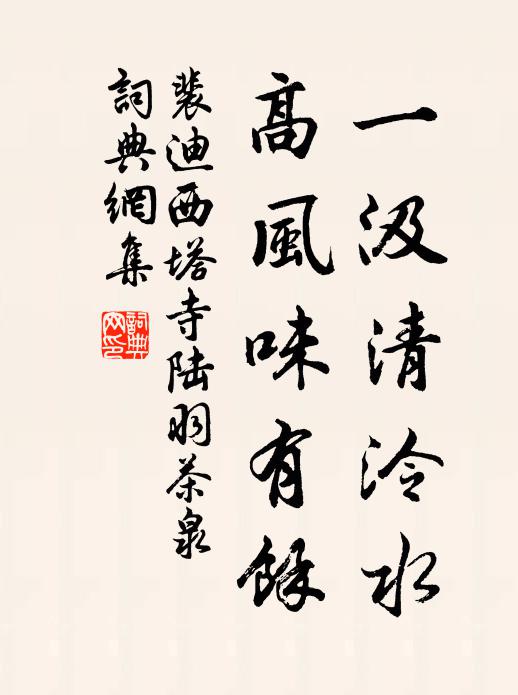 一汲清泠水
高風味有餘
裴迪西塔寺陸羽茶泉
詞典網集
詞典網印